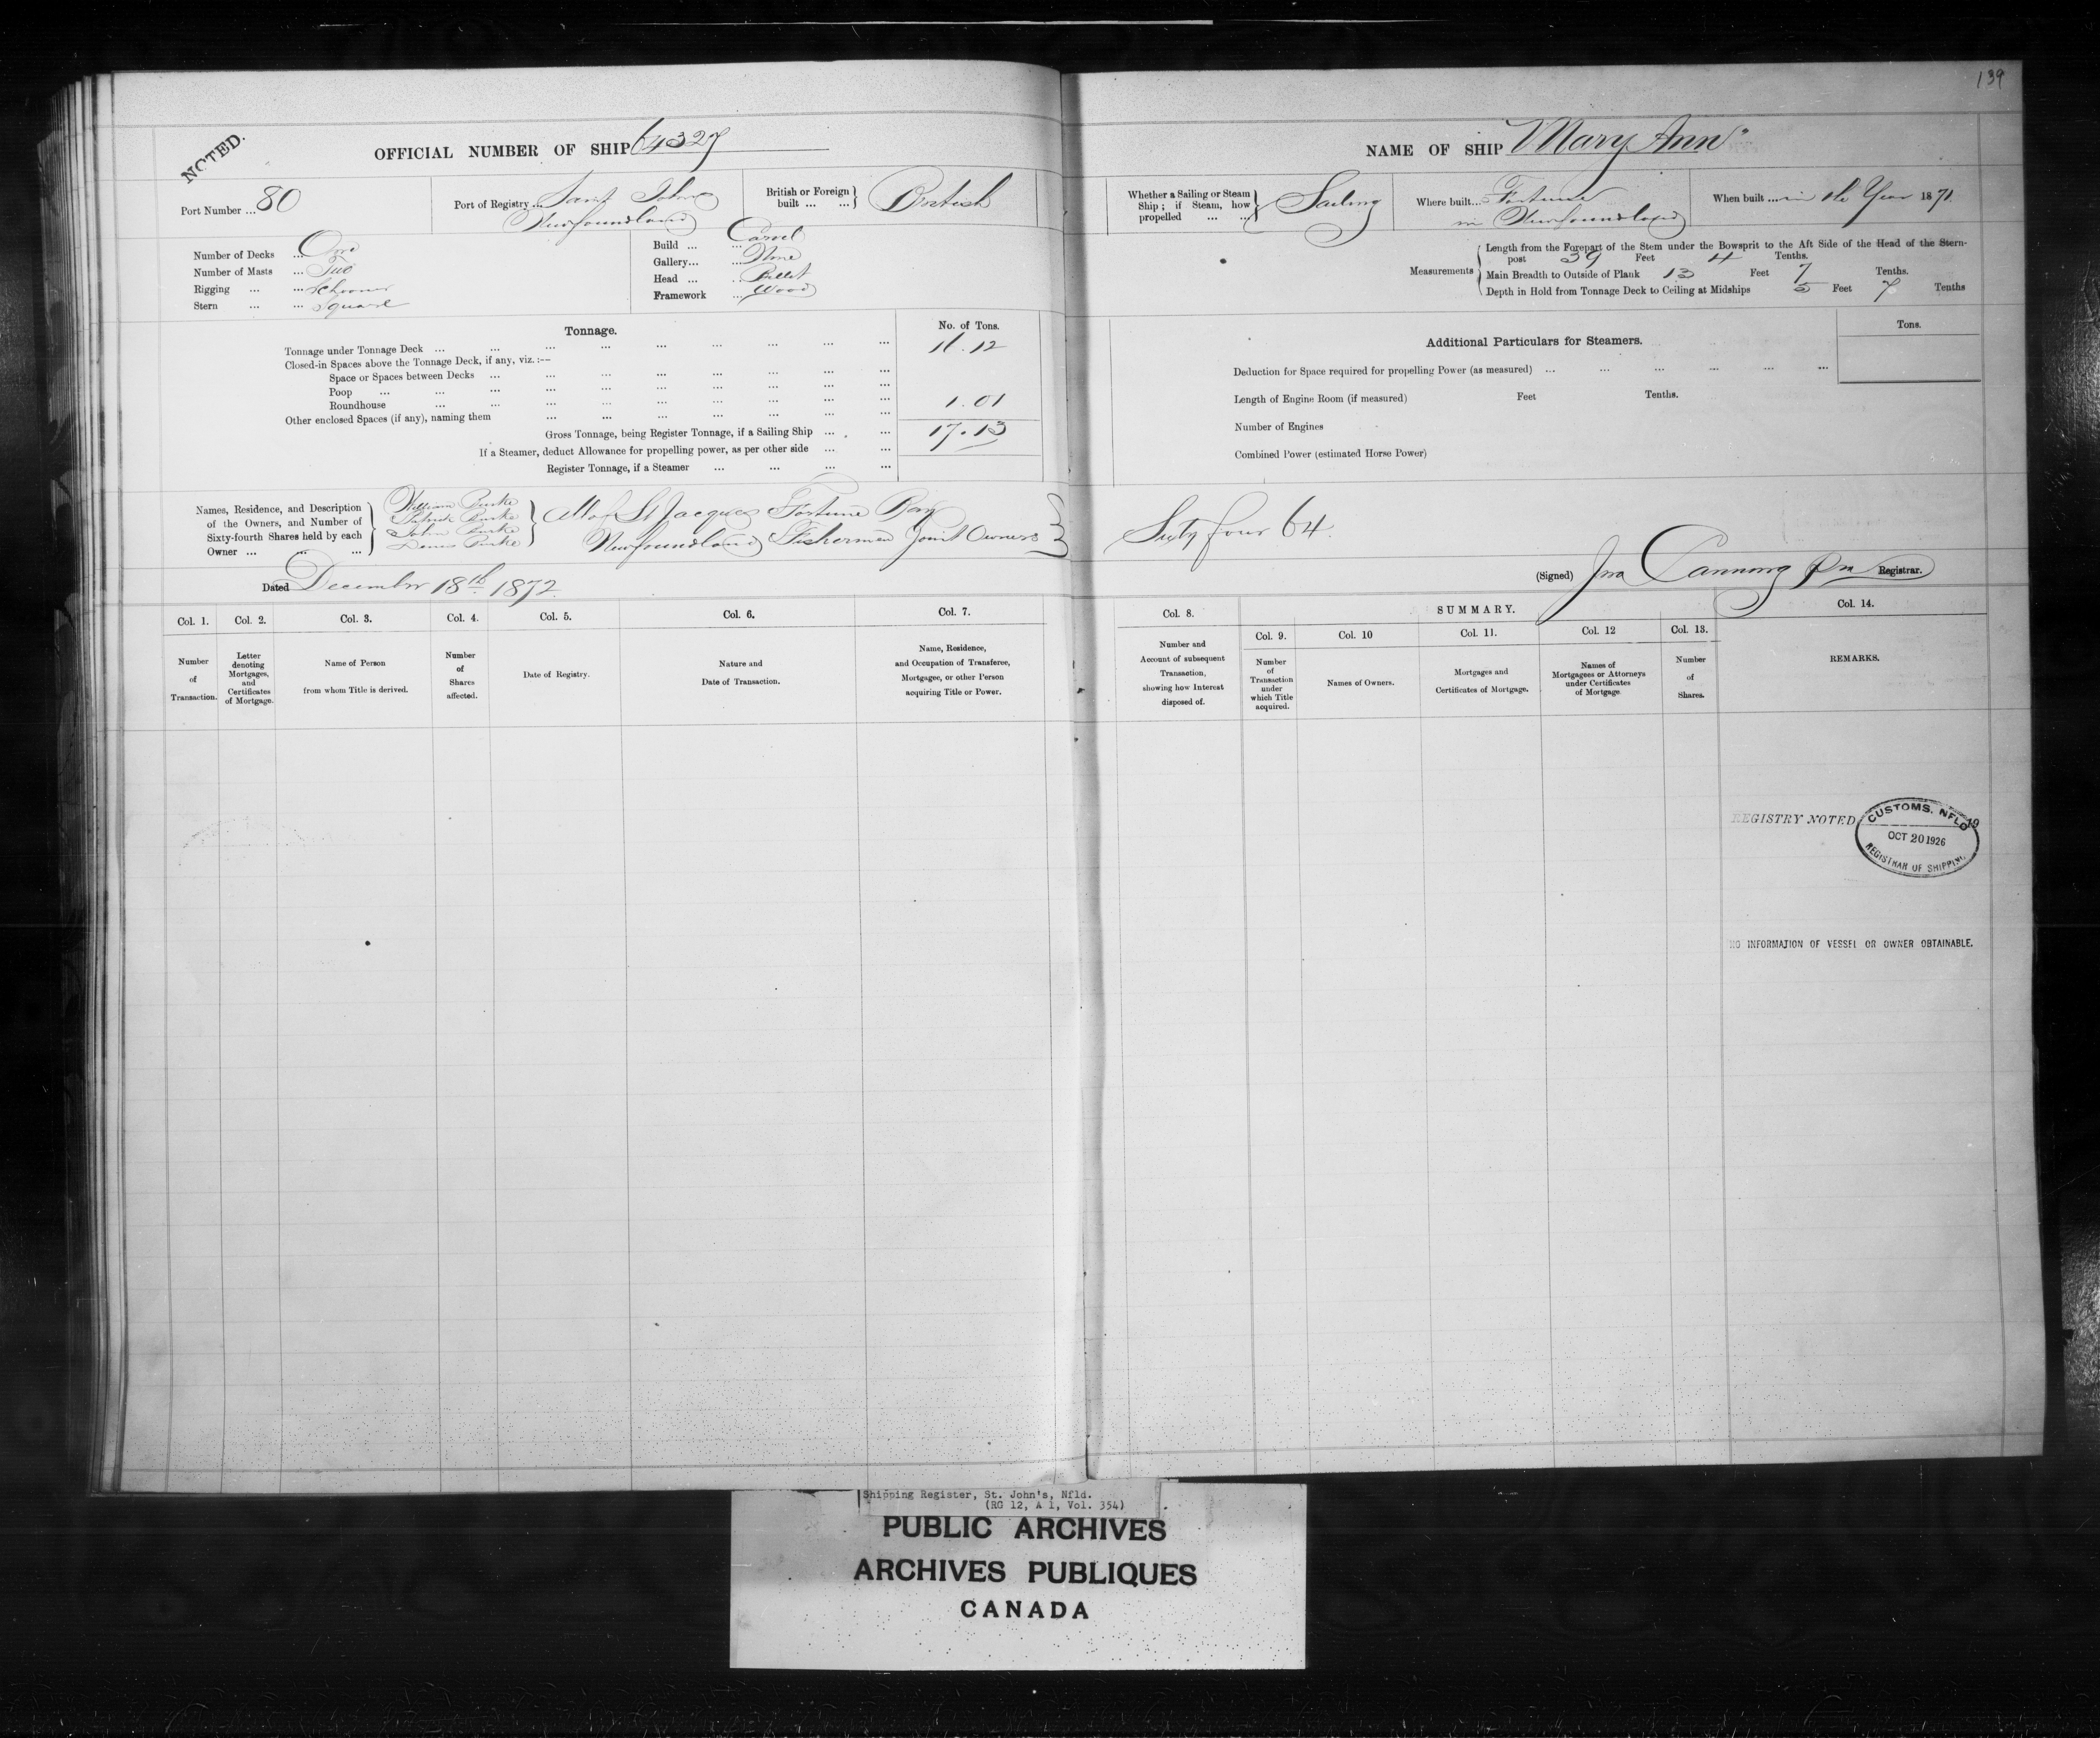 139
NOTED.
OFFICIAL NUMBER OF SHIP 64327
NAME OF SHIP "Mary Ann"
Port Number ... 80
Port of Registry ... Saint Johns
Newfoundland
British or Foreign built ... ... British
Whether a Sailing or Steam Ship; if Steam, how propelled ... ... Sailing
Where built... Fortune
in Newfoundland
When built ... in the Year 1871
Number of Decks ... One
Number of Masts ... Two
Rigging ... ... Schooner
Stern ... ... Square
Build ... ... Carvel
Gallery... ... None
Head ... ... Billet
Framework ... Wood
Measurements
Length from the Forepart of the Stem under the Bowsprit to the Aft Side of the Head of the Stern-
post 39 Feet 4 Tenths.
Main Breadth to Outside of Plank 13 Feet 7 Tenths.
Depth in Hold from Tonnage Deck to Ceiling at Midships 5 Feet 7 Tenths
Tonnage.
No. of Tons.
Tonnage under Tonnage Deck ... 12
Closed-in Spaces above the Tonnage Deck, if any, viz.:—
Space or Spaces between Decks ...
Poop ...
Roundhouse ... 1.01
Other enclosed Spaces (if any), naming them ...
Gross Tonnage, being Register Tonnage, if a Sailing Ship ... 17.13
If a Steamer, deduct Allowance for propelling power, as per other side ...
Register Tonnage, if a Steamer ...
Tons.
Additional Particulars for Steamers.
Deduction for Space required for propelling Power (as measured) ...
Length of Engine Room (if measured) Feet Tenths.
Number of Engines
Combined Power (estimated Horse Power)
Names, Residence, and Description
of the Owners, and Number of
Sixty-fourth Shares held by each
Owner ... ... ...
William Burke
Patrick Burke
John Burke
Denis Burke
All of St Jacques Fortune Bay
Newfoundland Fishermen Joint Owners
Sixty four 64.
Dated December 18th 1872.
(Signed) Jno Canning Registrar.
Col. 1.
Number
of
Transaction.
Col. 2.
Letter
denoting
Mortgages,
and
Certificates
of Mortgage.
Col. 3.
Name of Person
from whom Title is derived.
Col. 4.
Number
of
Shares
affected.
Col. 5.
Date of Registry.
Col. 6.
Nature and
Date of Transaction.
Col. 7.
Name, Residence,
and Occupation of Transferee,
Mortgagee, or other Person
acquiring Title or Power.
Col. 8.
Number and
Account of subsequent
Transaction,
showing how Interest
disposed of.
SUMMARY.
Col. 9.
Number
of
Transaction
under
which Title
acquired.
Col. 10
Names of Owners.
Col. 11.
Mortgages and
Certificates of Mortgage.
Col. 12
Names of
Mortgagees or Attorneys
under Certificates
of Mortgage
Col. 13.
Number
of
Shares.
Col. 14.
REMARKS.
REGISTRY NOTED 19
CUSTOMS. NFLD
OCT 20 1926
REGISTRAR OF SHIPPING
NO INFORMATION OF VESSEL OR OWNER OBTAINABLE.
Shipping Register, St. John's, Nfld.
(RG 12, A 1, Vol. 354)
PUBLIC ARCHIVES
ARCHIVES PUBLIQUES
CANADA